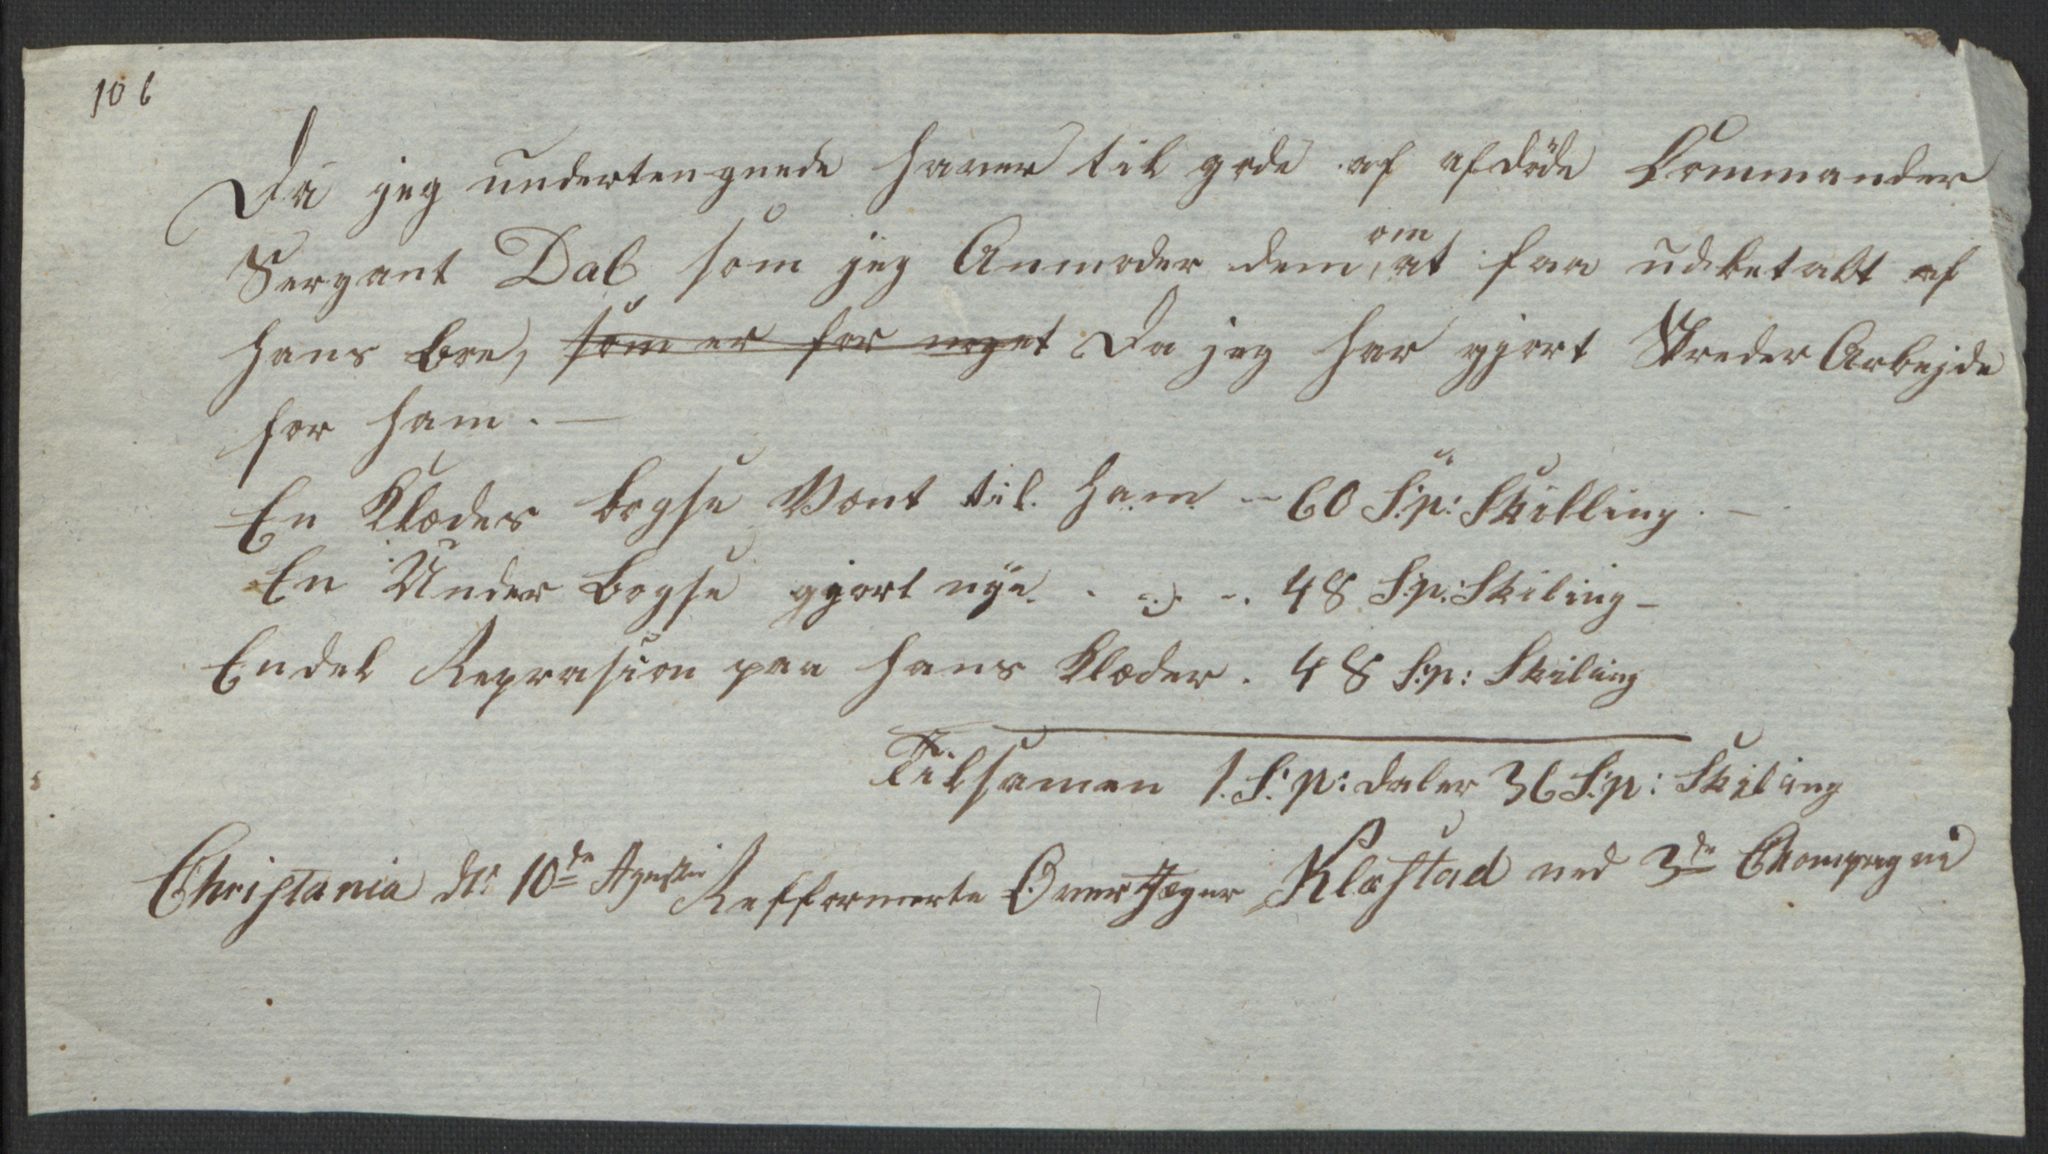 106
Da jeg undertengnede haver til gode af afdöde Commander
Sergant Dal som jeg Anmoder dem om at faa udbetalt af
hans boe, som er for noget Da jeg har gjort Skreder Arbejde
for ham. —
En Klædes bogse Vænt til ham — 60 S:p: Skilling. —
En Under bogse gjort nye. . . -. 48 S:p: Skiling —
Endel Reprasion paa hans Klæder. 48 S:p: Skiling
Tilsamen 1. S:p: daler 36 S:p: Skiling
Christania d. 10de Agusti Refformerte Overjæger Klæstad ved 3de Chompagni